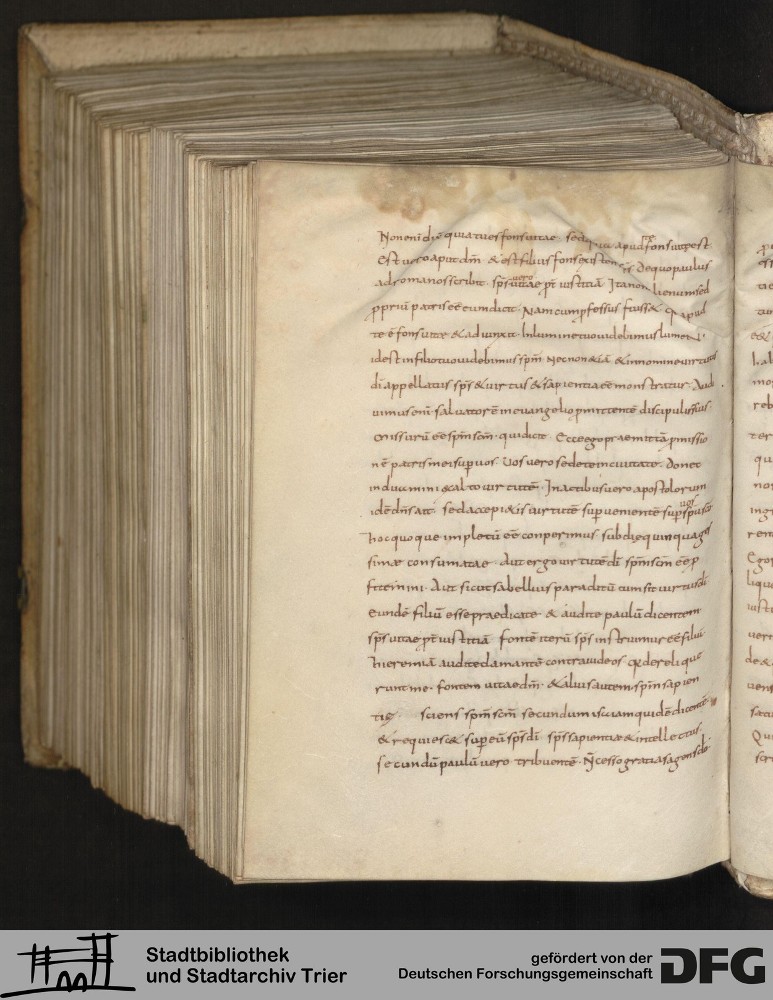 Non eni diē quia tu es fons uitae. sed quia apud te fons uitae est.
Est uero aput dm̄ & est filius fons existens. De quo paulus
ad romanos scribit. sp̄s uero uitae pt̄ iustitiā. Ita non alienum sed
ppriū patris eē eum dicit. Nam cum pfessus fuiss& qd apud
te ē fons uitae & adiunxit. In lumine tuo uidebimus lumen.
id est in filio tuo uidebimus sp̄m. Nec non &iā & in nomine uirtutis
dī appellatus sp̄s & uirtus & sapientia eē monstratur. Aud
uimus eni saluatorē in euangelio pmittentē discipulis suis
missurū eē sp̄m sc̄m. qui dicit. Ecce ego praemittā pmissio
nē patris mei sup uos. Uos uero sedete in ciuitate. donec
induamini &alto uirtutē. In actibus uero apostolorum
idē dn̄s ait. sed accepi&is uirtutē sup uenientē sup uos sp̄us sc̄i
hoc quoque impletū eē conperimus. sub die quinquage
simae consumatae. Aut ergo uirtutē dī sp̄m sc̄m eē p
fitemini. Aut sicut sabellius para ditū cum sit uirtus dī
eundē filiū esse praedicate. & audite paulū dicentem
sp̄s uitae pt̄ iustitiā fontē iterū sp̄s instruimur eē filii
hieremiā audite damantē contra iudeos. qd dereliquerunt
runt me. fontem uitae dm̄. & alius autem sp̄m sapien
tię. sciens sp̄m sc̄m secundum isaiam quidē dicentē
& requiesc& sup eū sp̄s dī. sp̄s sapientiae & intellectus.
secundū paulū uero tribuentē. N cesso gratias agens dō.
Stadtbibliothek
und Stadtarchiv Trier
gefördert von der
Deutschen Forschungsgemeinschaft
DFG